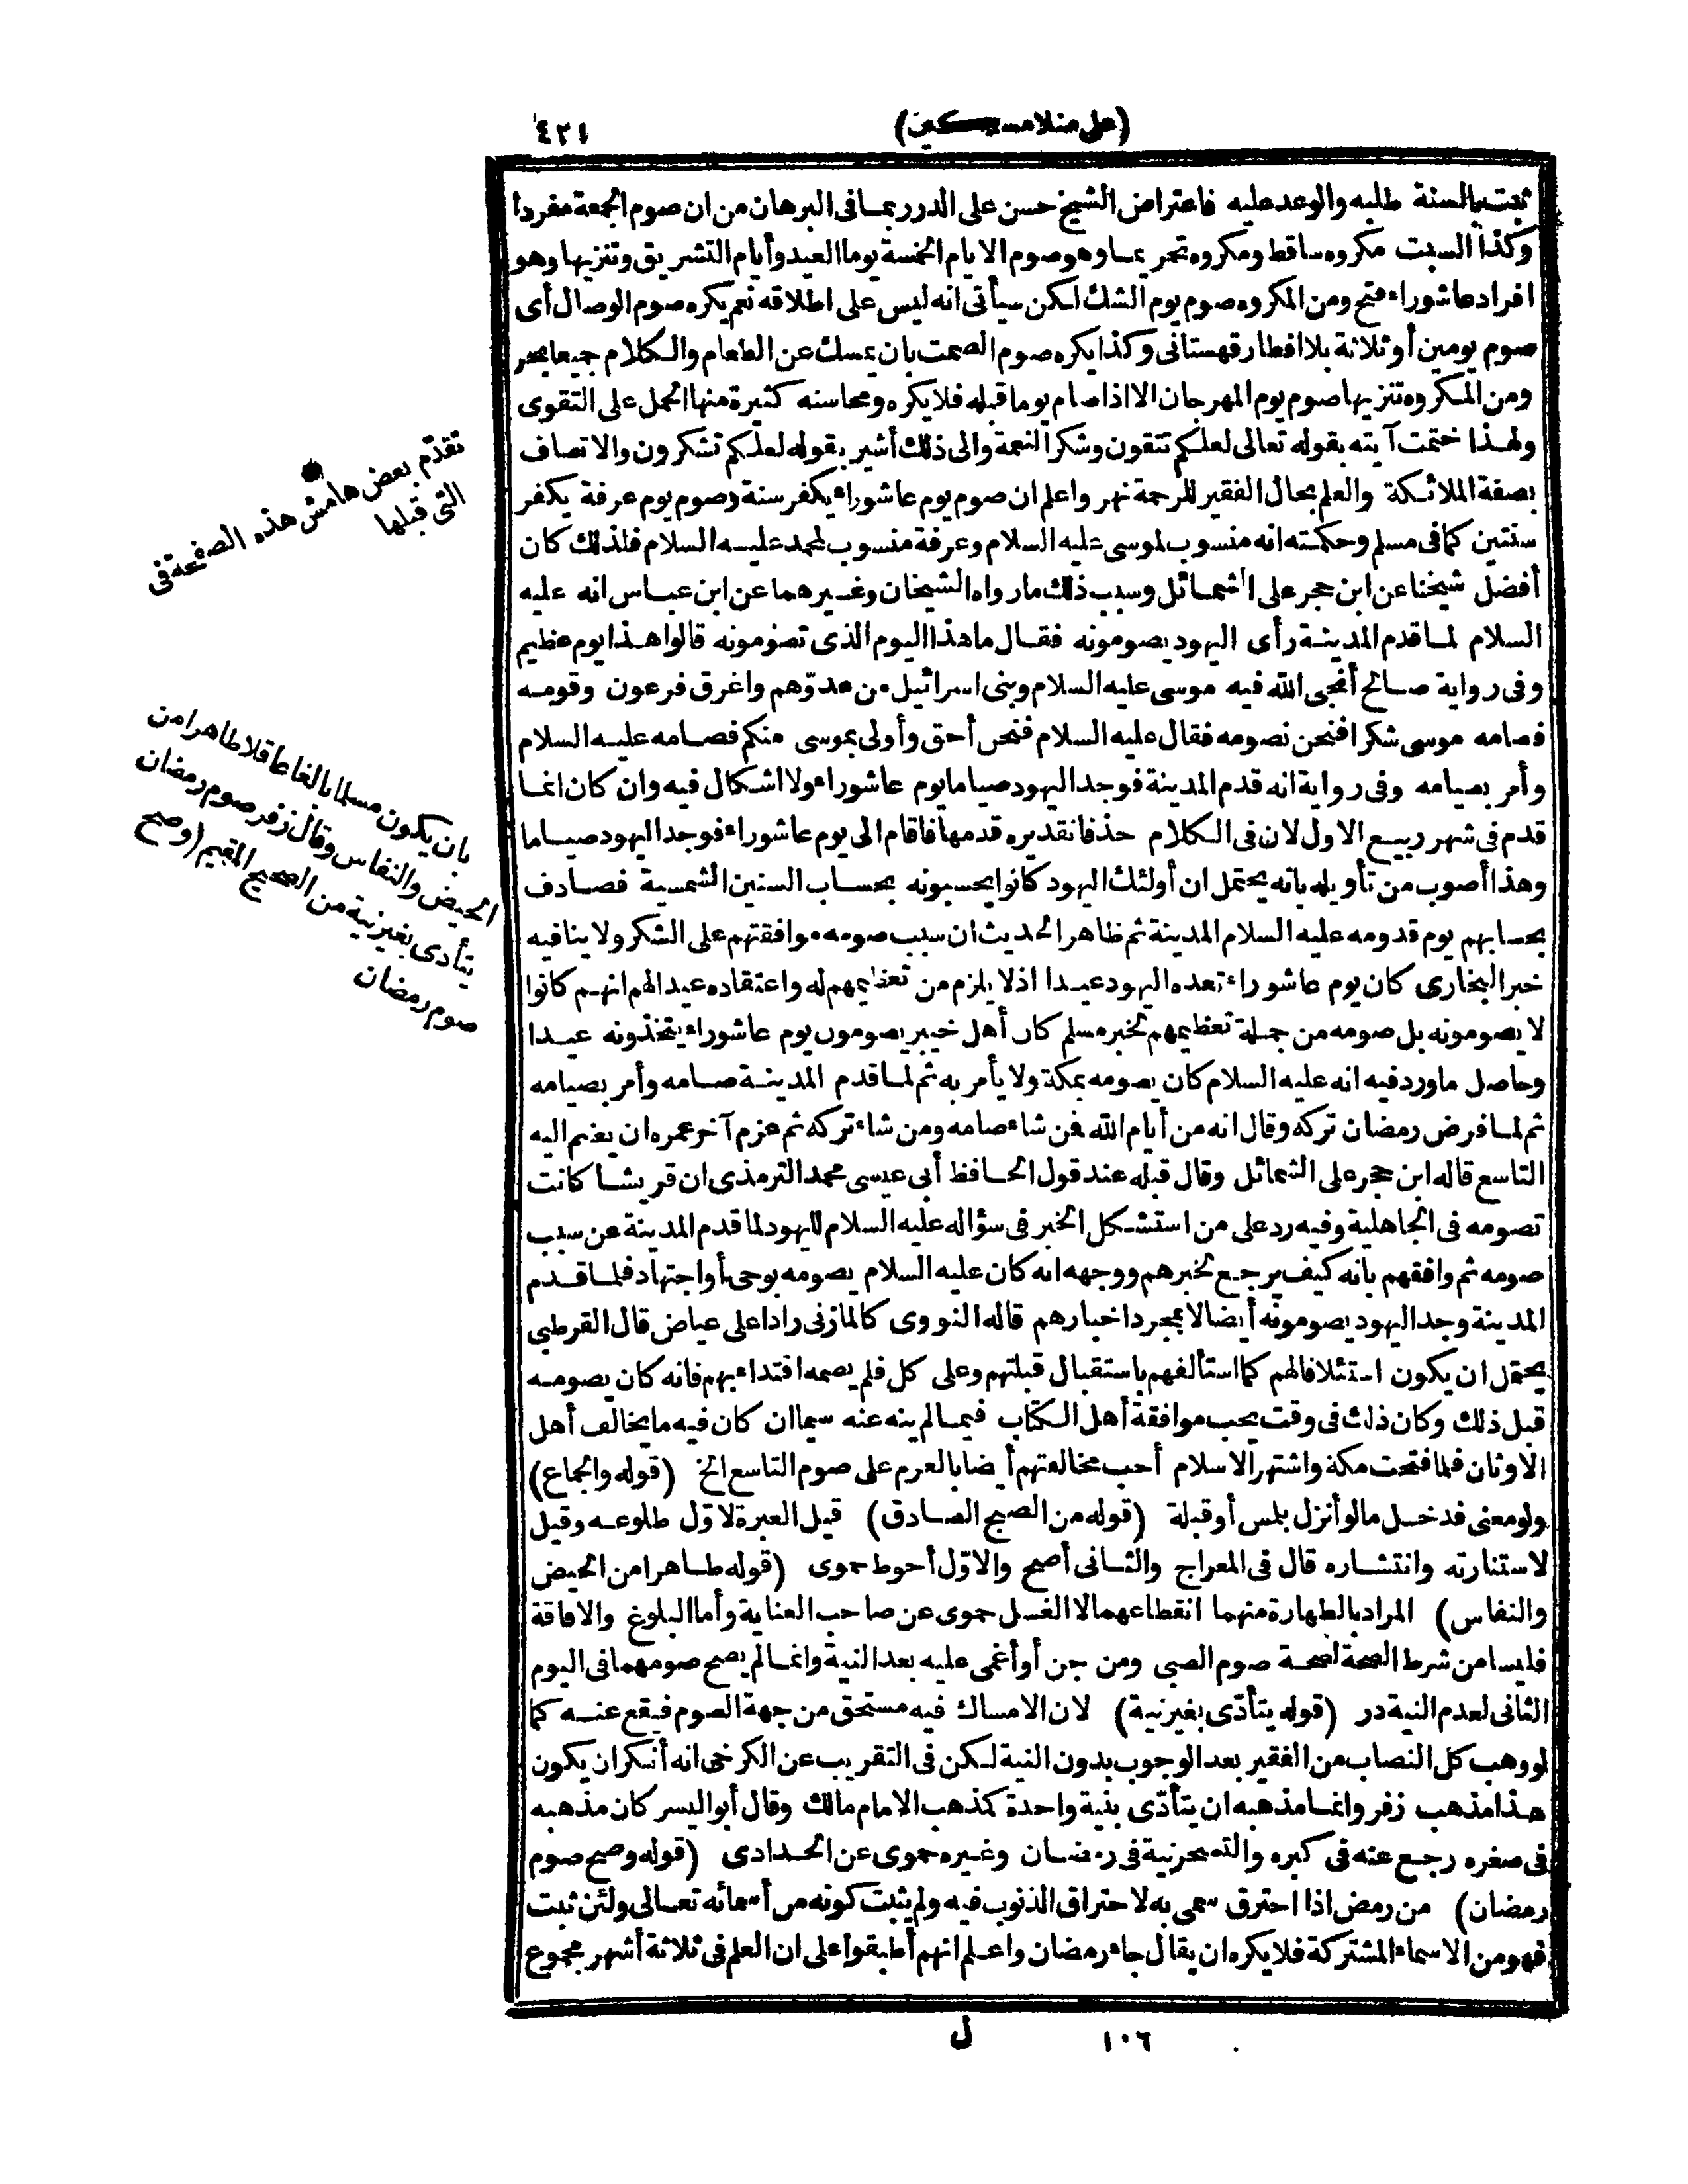 (على منلا مسكين) ٤٢١
ثبت بالسنة طلبه والوعد عليه فاعتراض الشيخ حسن على الدرر بما فى البرهان من ان صوم الجمعة مفردا
وكذا السبت مكروه ساقط ومكروه تحريما وهو صوم الايام الخمسة يوما العيد وأيام التشريق وتنزيها وهو
افراد عاشوراء فتح ومن المكروه صوم يوم الشك لكن سيأتى انه ليس على اطلاقه نعم يكره صوم الوصال أى
صوم يومين أو ثلاثة بلا افطار قهستانى وكذا يكره صوم الصمت بان يمسك عن الطعام والكلام جميعا بحر
ومن المكروه تنزيها صوم يوم المهرجان الا اذا صام يوما قبله فلا يكره ومحاسنه كثيرة منها الحمل على التقوى
ولهذا ختمت آيته بقوله تعالى لعلكم تتقون وشكر النعمة والى ذلك أشير بقوله لعلكم تشكرون والاتصاف
بصفة الملائكة والعلم بحال الفقير للرحمة نهر واعلم ان صوم يوم عاشوراء يكفر سنة وصوم يوم عرفة يكفر
سنتين كما فى مسلم وحكمته انه منسوب لموسى عليه السلام وعرفة منسوب لمحمد عليه السلام فلذلك كان
أفضل شيخنا عن ابن حجر على الشمائل وسبب ذلك ما رواه الشيخان وغيرهما عن ابن عباس انه عليه
السلام لما قدم المدينة رأى اليهود يصومونه فقال ما هذا اليوم الذى تصومونه قالوا هذا يوم عظيم
وفى رواية صالح أنجى الله فيه موسى عليه السلام وبنى اسرائيل من عدوّهم واغرق فرعون وقومه
فصامه موسى شكرا فنحن نصومه فقال عليه السلام فنحن أحق وأولى بموسى منكم فصامه عليه السلام
وأمر بصيامه وفى رواية انه قدم المدينة فوجد اليهود صياما يوم عاشوراء ولا اشكال فيه وان كان انما
قدم فى شهر ربيع الاول لان فى الكلام حذفا تقديره قدمها فاقام الى يوم عاشوراء فوجد اليهود صياما
وهذا أصوب من تأويله بانه يحتمل ان أولئك اليهود كانوا يحسبونه بحساب السنين الشمسية فصادف
بحسابهم يوم قدومه عليه السلام المدينة ثم ظاهر الحديث ان سبب صومه موافقتهم على الشكر ولا ينافيه
خبر البخارى كان يوم عاشوراء تعده اليهود عيدا اذ لا يلزم من تعظيمهم له واعتقاده عيدا لهم انهم كانوا
لا يصومونه بل صومه من جملة تعظيمهم لخبر مسلم كان أهل خيبر يصومون يوم عاشوراء يتخذونه عيدا
وحاصل ما ورد فيه انه عليه السلام كان يصومه بمكة ولا يأمر به ثم لما قدم المدينة صامه وأمر بصيامه
ثم لما فرض رمضان تركه وقال انه من أيام الله فمن شاء صامه ومن شاء تركه ثم عزم آخر عمره ان يضم اليه
التاسع قاله ابن حجر على الشمائل وقال قبله عند قول الحافظ أبى عيسى محمد الترمذى ان قريشا كانت
تصومه فى الجاهلية وفيه رد على من استشكل الخبر فى سؤاله عليه السلام لليهود لما قدم المدينة عن سبب
صومه ثم وافقهم بانه كيف يرجع لخبرهم ووجهه انه كان عليه السلام يصومه بوحى أو اجتهاد فلما قدم
المدينة وجد اليهود يصومونه أيضا لا بمجرد اخبارهم قاله النووى كالمازنى رادا على عياض قال القرطبى
يحتمل ان يكون استئلافا لهم كما استألفهم باستقبال قبلتهم وعلى كل فلم يصمه اقتداء بهم فانه كان يصومه
قبل ذلك وكان ذلك فى وقت يحب موافقة أهل الكتاب فيما لم ينه عنه سيما ان كان فيه ما يخالف أهل
الاوثان فلما فتحت مكة واشتهر الاسلام أحب مخالفتهم أيضا بالعزم على صوم التاسع الخ (قوله والجماع)
ولو معنى فدخل ما لو أنزل بلمس أو قبلة (قوله من الصبح الصادق) قيل العبرة لاوّل طلوعه وقيل
لاستنارته وانتشاره قال فى المعراج والثانى أصح والاوّل أحوط حموى (قوله طاهرا من الحيض
والنفاس) المراد بالطهارة منهما انقطاعهما لا الغسل حموى عن صاحب العناية وأما البلوغ والافاقة
فليسا من شرط الصحة لصحة صوم الصبى ومن جن أو أغمى عليه بعد النية وانما لم يصح صومهما فى اليوم
الثانى لعدم النية در (قوله يتأدّى بغير نية) لان الامساك فيه مستحق من جهة الصوم فيقع عنه كما
لو وهب كل النصاب من الفقير بعد الوجوب بدون النية لكن فى التقريب عن الكرخى انه أنكر ان يكون
هذا مذهب زفر وانما مذهبه ان يتأدّى بنية واحدة كمذهب الامام مالك وقال أبو اليسر كان مذهبه
فى صغره رجع عنه فى كبره والتسحر نية فى رمضان وغيره حموى عن الحدادى (قوله وصح صوم
رمضان) من رمض اذا احترق سمى به لاحتراق الذنوب فيه ولم يثبت كونه من أسمائه تعالى ولئن ثبت
فهو من الاسماء المشتركة فلا يكره ان يقال جاء رمضان واعلم انهم أطبقوا على ان العلم فى ثلاثة أشهر مجموع
تقدّم بعض هامش هذه الصفحة فى
التى قبلها
بان يكون مسلما بالغا عاقلا طاهرا من
الحيض والنفاس وقال زفر صوم رمضان
يتأدى بغير نية من الصحيح المقيم (وصح
صوم رمضان
١٠٦ ل